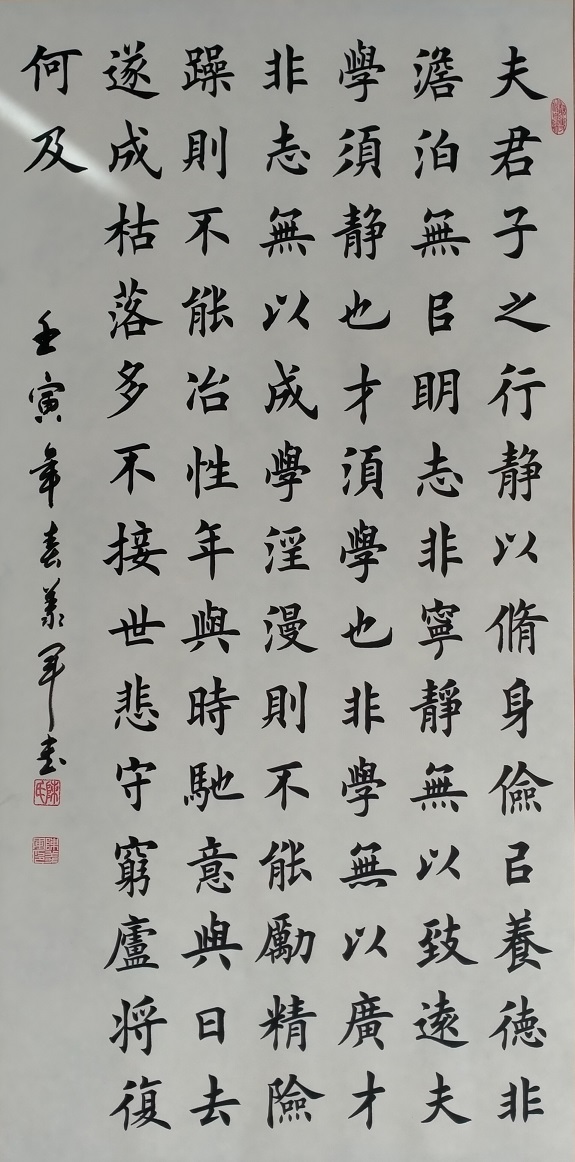 夫君子之行静以脩身儉㠯養徳非
澹泊無㠯眀志非寧靜無以致遠夫
學須静也才須學也非學無以廣才
非志無以成學淫漫則不能勵精險
躁則不能冶性年與時馳意與日去
遂成枯落多不接世悲守窮廬将復
何及
壬寅年春義军书